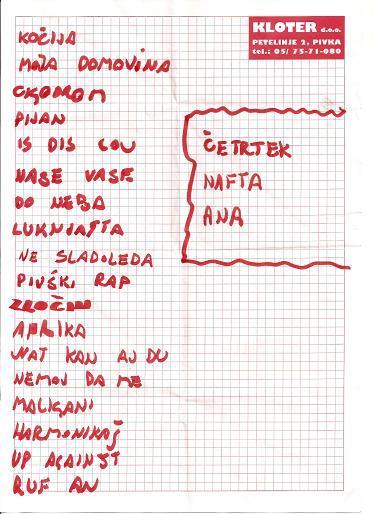 KLOTER d.o.o.
PETELINJE 2, PIVKA
tel.: 05/ 75-71-080
KOČIJA
MOJA DOMOVINA
PIJAN
IS DIS LOV
NAŠE VASE
DO NEBA
NE SLADOLEDA
PIVŠKI RAP
ZLOČIN
AFRIKA
WAT KAN AJ DU
NEMOJ DA ME
MALIGANI
HARMONIKAŠ
UP AGAINST
RUF AN
ČETRTEK
NAFTA
ANA